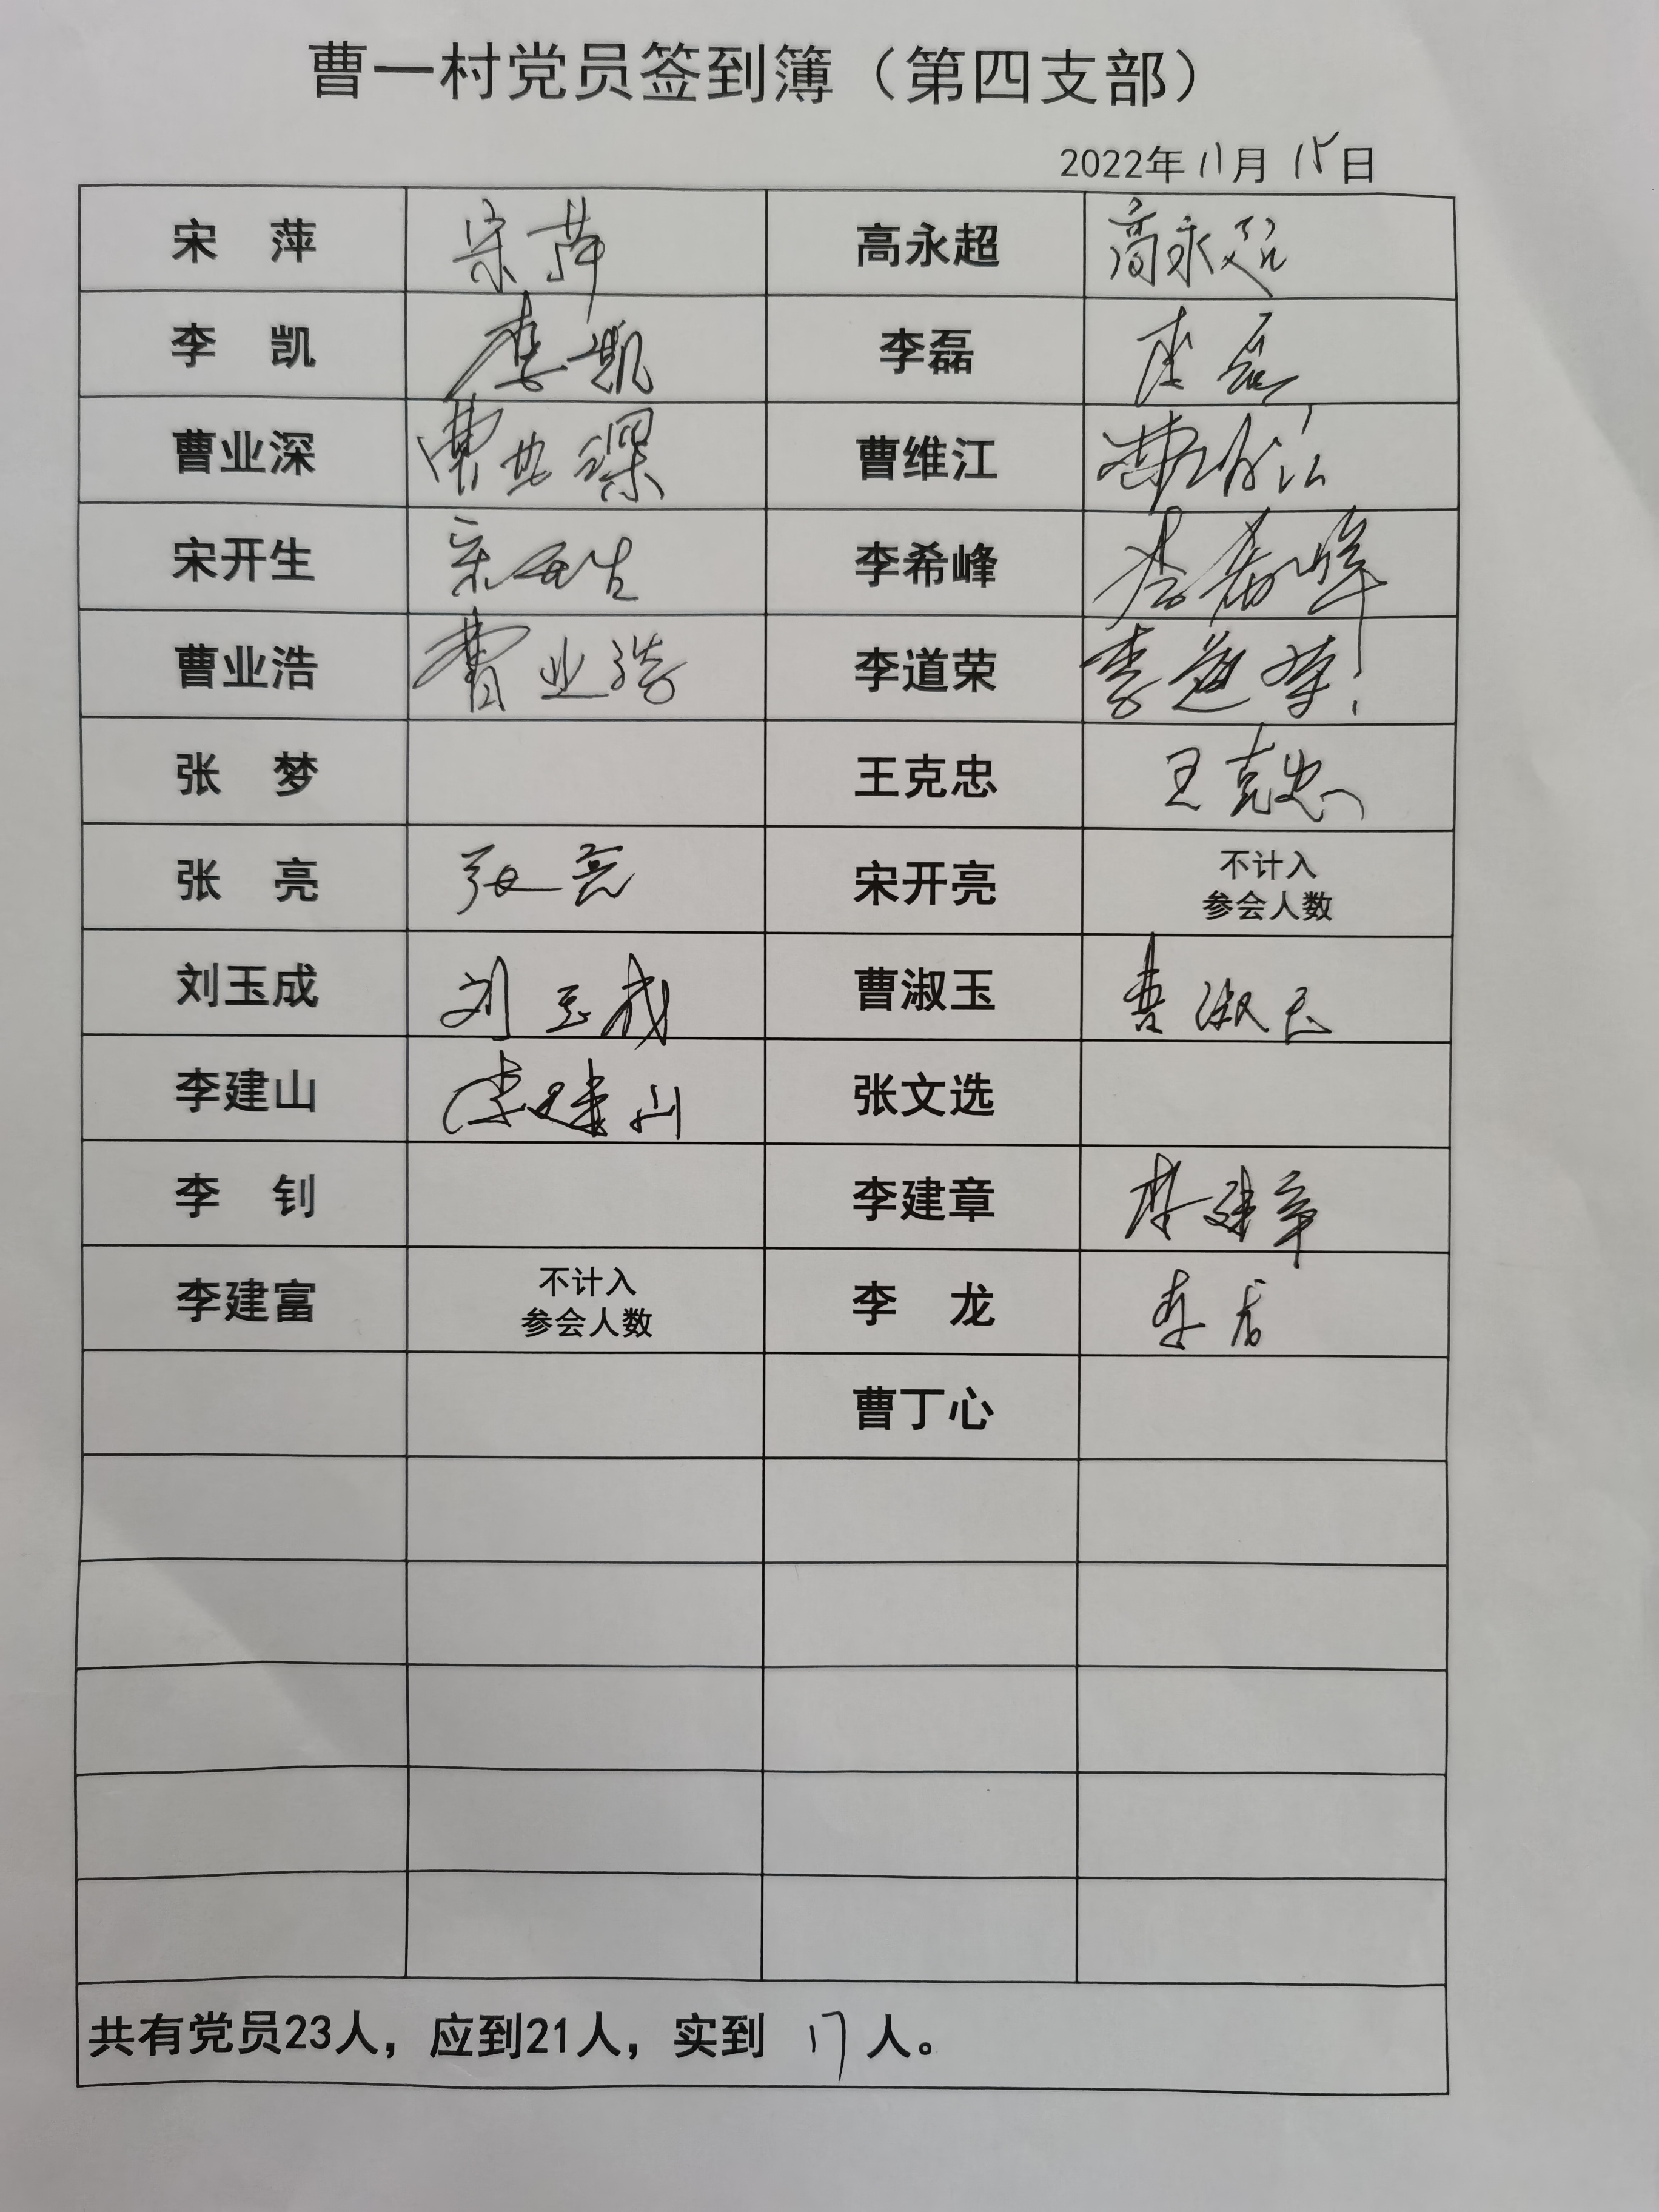 曹一村党员签到簿（第四支部）
2022年11月15日
宋 萍 宋萍 高永超 高永超
李 凯 李凯 李磊 李磊
曹业深 曹业深 曹维江 曹维江
宋开生 宋开生 李希峰 李希峰
曹业浩 曹业浩 李道荣 李道荣
张 梦 王克忠 王克忠
张 亮 张亮 宋开亮 不计入
参会人数
刘玉成 刘玉成 曹淑玉 曹淑玉
李建山 李建山 张文选
李 钊 李建章 李建章
李建富 不计入 李 龙 李龙
参会人数
曹丁心
共有党员23人，应到21人，实到 17人。